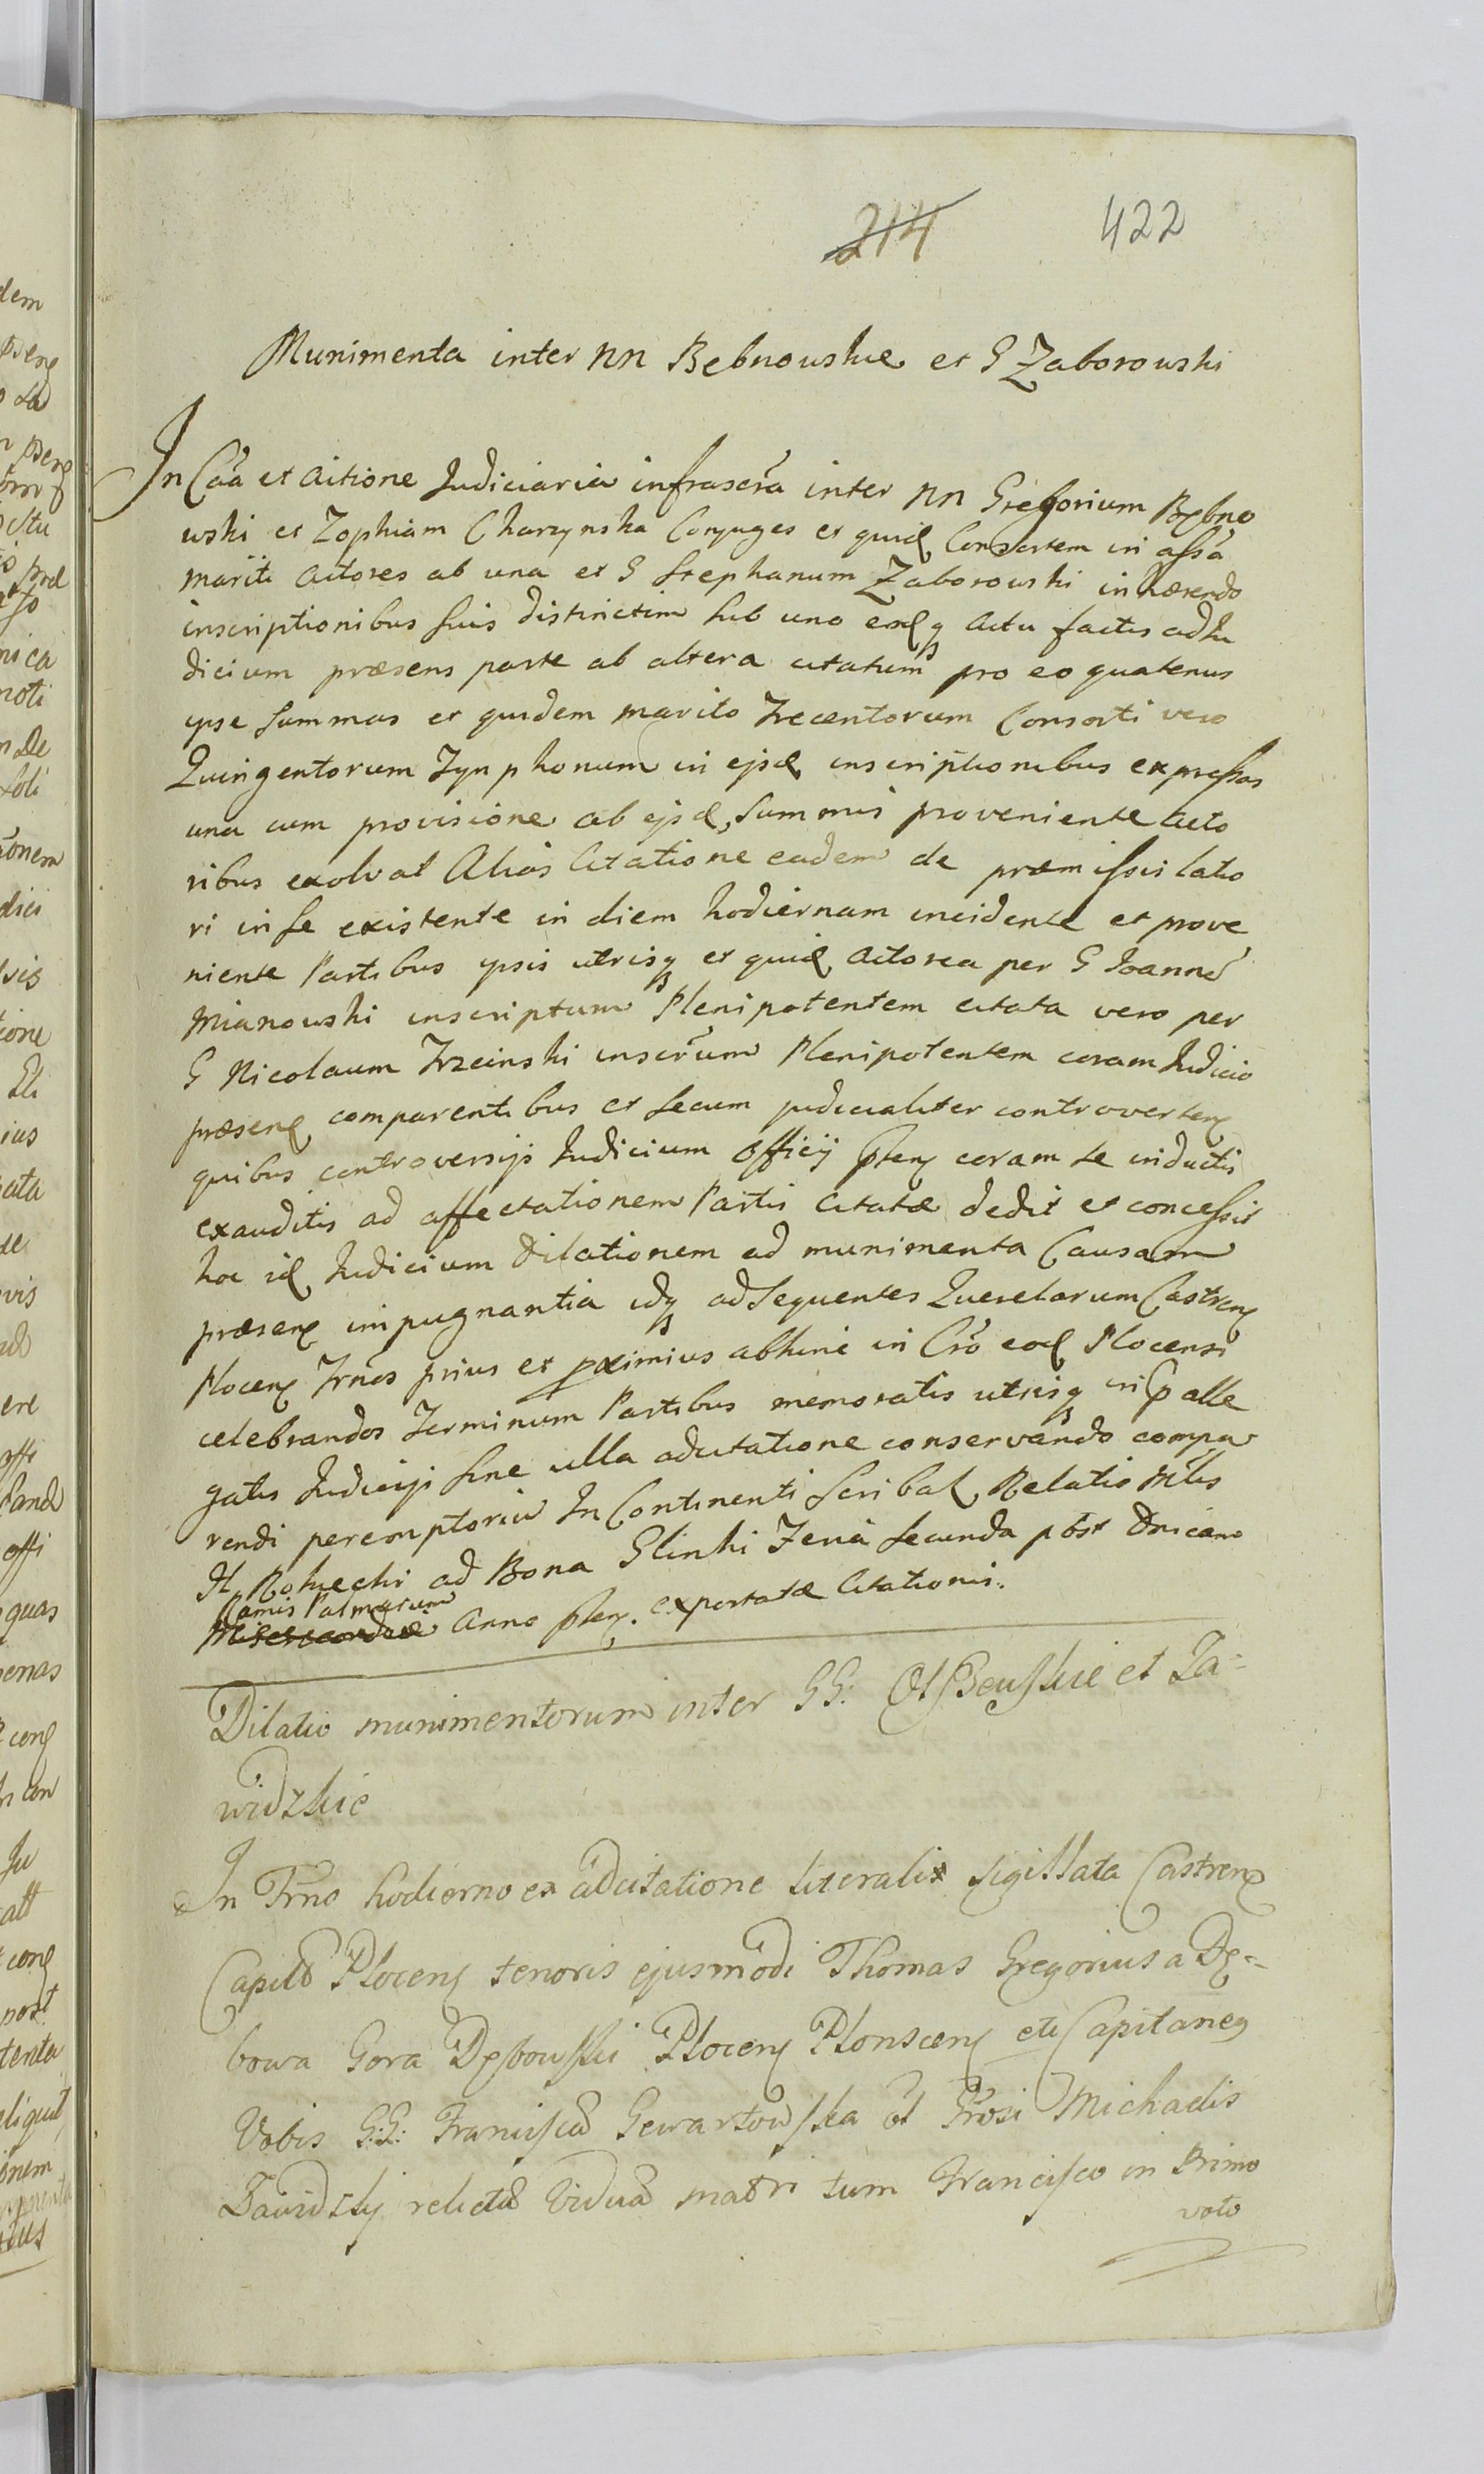 214 422
Munimenta inter NN Bębnowskie et G Zaborowski
In Cãa et Actione Judiciaria infrascrã inter NN Gregorium Bębno
wski et Zophiam Charzynska Conjuges et quid Consortem in assã
mariti Actores ab una et G Stephanum Zaborowski inhærendo
inscriptionibus suis distinctim sub uno eodq actu factis ad Ju
dicium præsens parte ab altera citatum pro eo quatenus
ipse summas et quidem marito Trecentorum Consorti vero
Quingentorum Tynphonum in ejsd inscriptionibus expressas
una cum provisione ab ejsd summis proveniente Acto
ribus exolvat Alias Citatione eadem de præmissis latio
ri in se existente in diem hodiernam incidente et prove
niente Partibus ipsis utrisq et quid Actorea per G Joanne
Mianowski inscriptum Plenipotentem citata vero per
G Nicolaum Trzcinski inscrũm Plenipotentem coram Judicio
præsen comparentibus et secum judicialiter controverten
quibus controversijs Judicium Officij pñs coram se inductis
exauditis ad affectationem Partis Citatæ dedit et concessit
hoc id Judicium Dilationem ad munimenta Causam
præsen impugnantia idq ad sequentes Querelarum Castren
Plocen Trños prius et pximius abhinc in Crõ eod Plocensi
celebrandos Terminum Partibus memoratis utrisq in p alle
gatis Judicijs sine ulla adcitatione conservando compa
rendi peremptorie In Continenti Scribal Relatio Mlis
H Rokicki ad Bona Glinki Feria secunda post Dnicam
Ramis Palmarum
Misericordiæ Anno pñ. exportatæ Citationis.
Dilatio munimentorum inter GG: et Za-
widzkie
In Trño hodierno ex adcitatione literali sigillata Castren
Capitl Plocen tenoris ejusmodi Thomas Gregorius a Dę-
bowa Gora Dębowski Plocen Plonscen etc Capitaneq
Vobis G:G: Francisca Gewartowska ol Grosi Michaelis
Zawidzkij relicta Vidua matri tum Francisco in Primo
voto